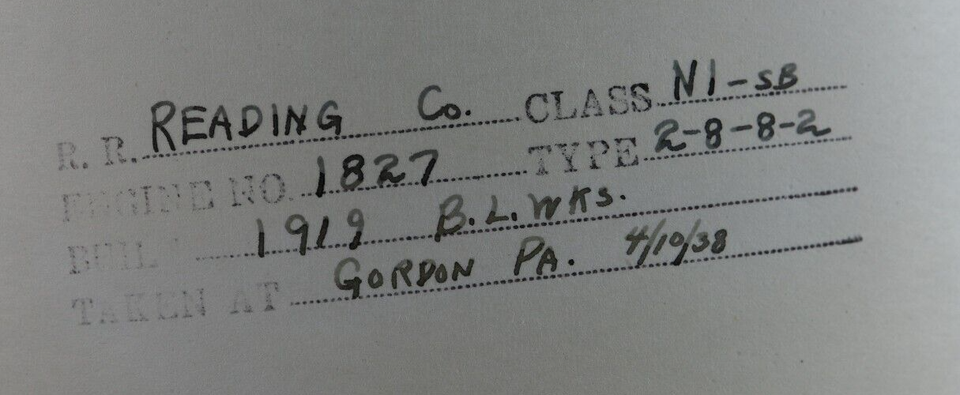 R. R. READING Co. CLASS N1-SB
ENGINE NO. 1827 TYPE 2-8-8-2
BUILT 1919 B.L. WKS.
TAKEN AT GORDON PA. 4/10/38